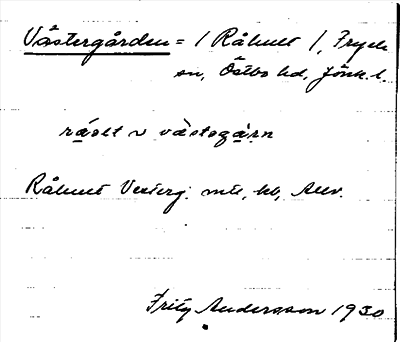 Västergården = / Råhult /, Fryele
sn, Östbo hd, Jönk. l.
råolt v västegårn
Råhult Västerg. mtl, kb, Allv.
Fritz Andersson 1930